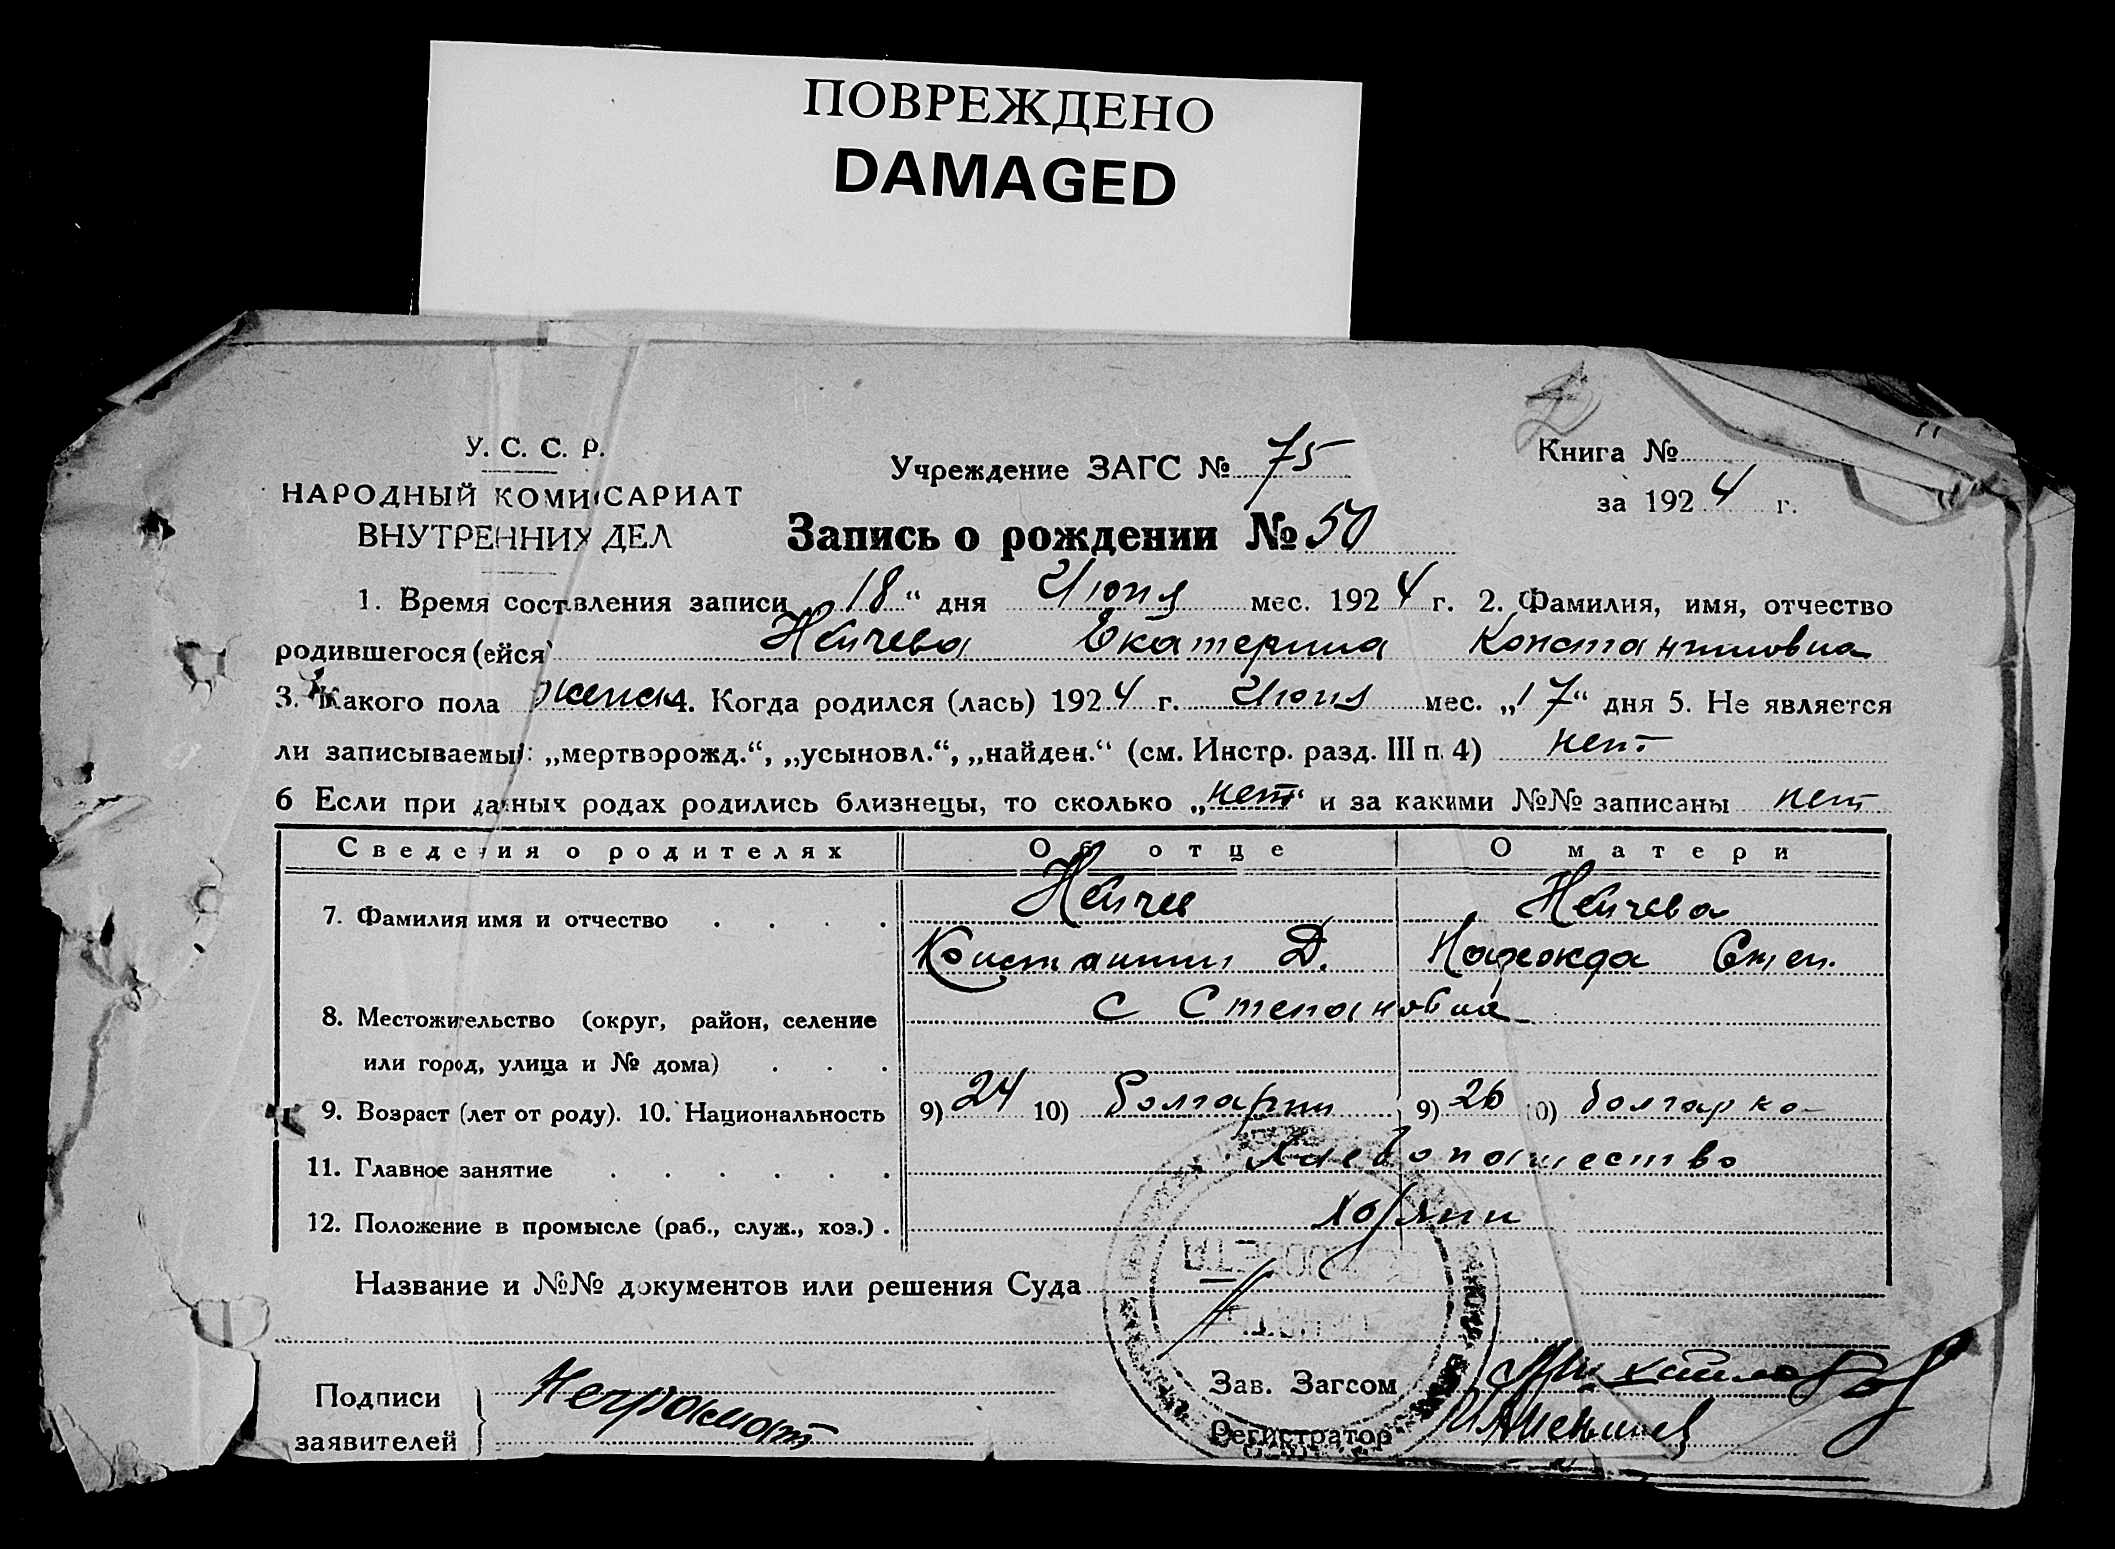 ПОВРЕЖДЕНО
DAMAGED
У. С. С. Р.
НАРОДНЫЙ КОМИССАРИАТ
ВНУТРЕННИХ ДЕЛ
Учреждение ЗАГС № 75
Книга №
за 1924 г.
Запись о рождении № 50
1. Время составления записи „18“ дня Июня мес. 1924 г. 2. Фамилия, имя, отчество
родившегося (ейся) Нейчева Екатерина Константиновна
3. Какого пола женск 4. Когда родился (лась) 1924 г. Июня мес. „17“ дня 5. Не является
ли записываемый: „мертворожд.“, „усыновл.“, „найден.“ (см. Инстр. разд. III п. 4) нет
6 Если при данных родах родились близнецы, то сколько „нет“ и за какими №№ записаны нет
Сведения о родителях Об отце О матери
7. Фамилия имя и отчество . . . . Нейчев Нейчева
Константин Д. Надежда Степ.
8. Местожительство (округ, район, селение с Степановка
или город, улица и № дома) . . .
9. Возраст (лет от роду). 10. Национальность 9) 24 10) Болгарин 9) 26 10) болгарка
11. Главное занятие . . . . . . Хлебопашество
12. Положение в промысле (раб., служ., хоз.) . хозяин
Название и №№ документов или решения Суда
Подписи
заявителей } Неграмот
Зав. Загсом
Регистратор